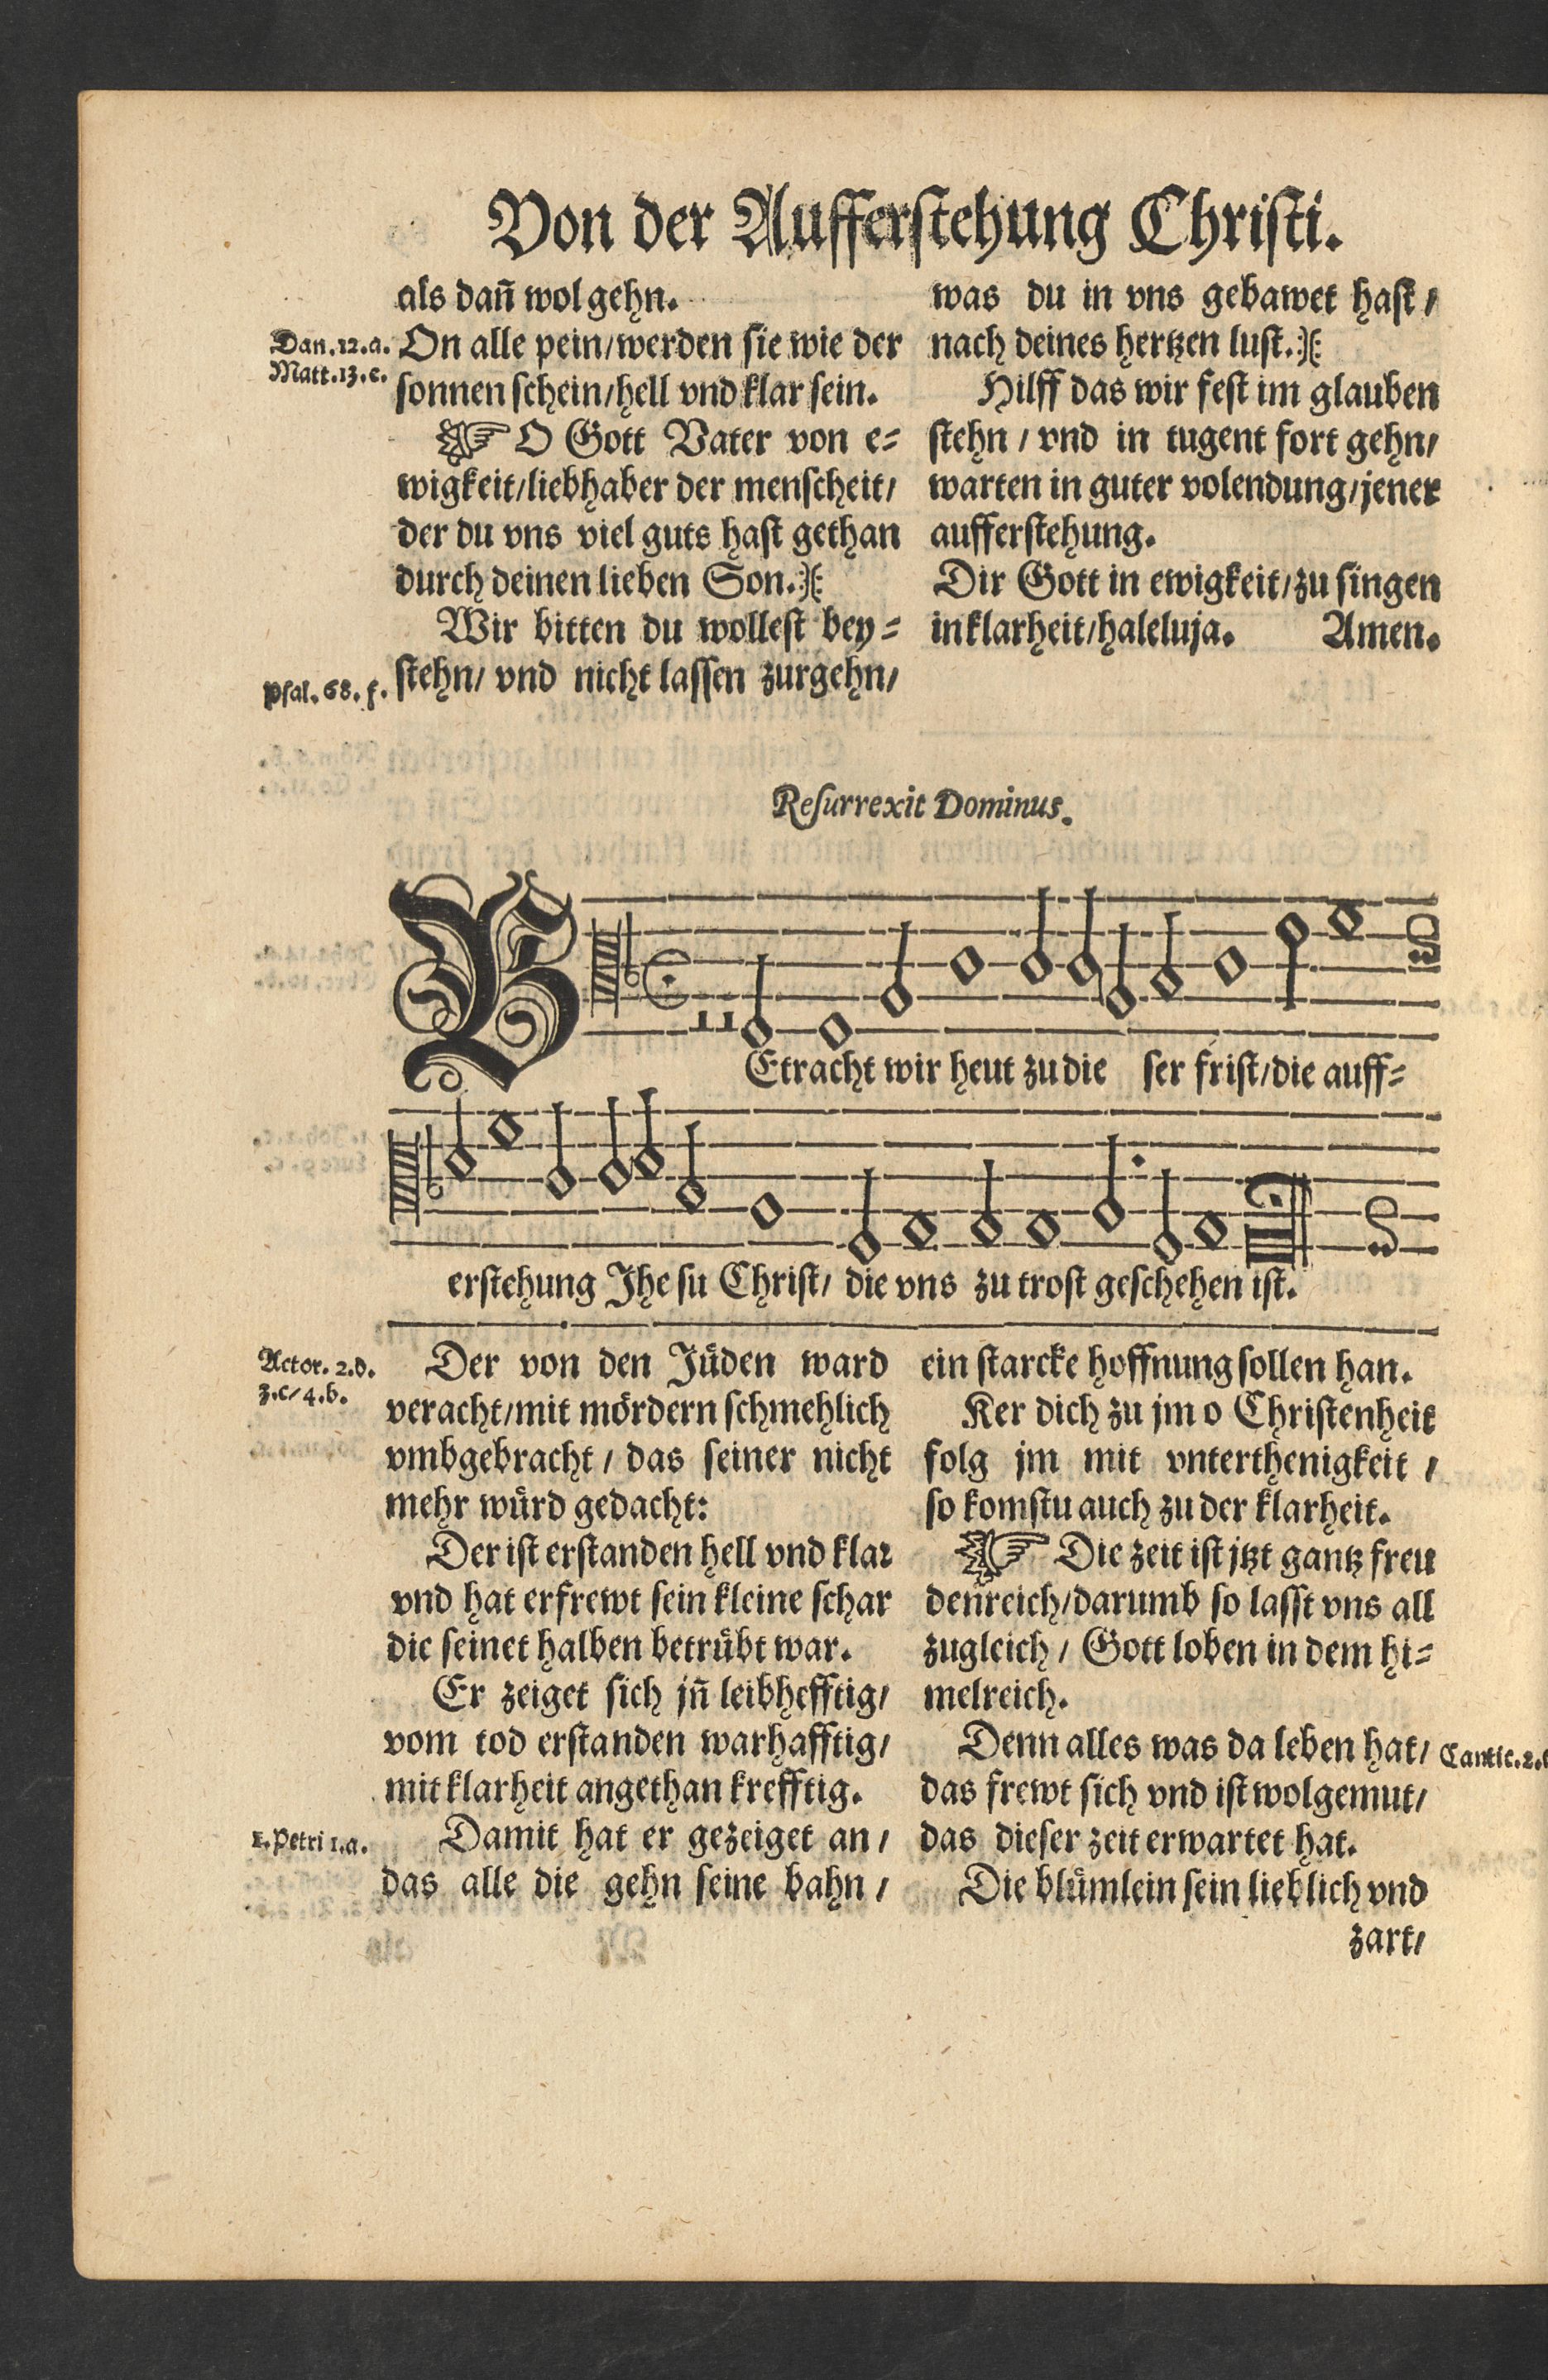 Von der Aufferstehung Christi.
als dañ wol gehn.
Dan.12.a.
On alle pein/werden sie wie der
Matt.13.e.
sonnen schein/hell vnd klar sein.
O Gott Vater von e=
wigkeit/liebhaber der menscheit/
der du vns viel guts hast gethan
durch deinen lieben Son.
Wir bitten du wollest bey=
Psal.68.f.
stehn/ vnd nicht lassen zurgehn/
was du in vns gebawet hast/
nach deines hertzen lust.
Hilff das wir fest im glauben
stehn / vnd in tugent fort gehn/
warten in guter volendung/jener
aufferstehung.
Dir Gott in ewigkeit/zu singen
inklarheit/haleluja. Amen.
Resurrexit Dominus.
BEtracht wir heut zu die ser frist/die auff=
erstehung Jhe su Christ/ die vns zu trost geschehen ist.
Actor. 2.d.
3.c/4.b.
Der von den Jüden ward
veracht/mit mördern schmehlich
vmbgebracht / das seiner nicht
mehr würd gedacht:
Der ist erstanden hell vnd klar
vnd hat erfrewt sein kleine schar
die seinet halben betrübt war.
Er zeiget sich jñ leibhefftig/
vom tod erstanden warhafftig/
mit klarheit angethan krefftig.
1.Petri 1.a.
Damit hat er gezeiget an /
das alle die gehn seine bahn /
ein starcke hoffnung sollen han.
Ker dich zu jm o Christenheit
folg jm mit vnterthenigkeit /
so komstu auch zu der klarheit.
Die zeit ist jtzt gantz freu
denreich/darumb so lasst vns all
zugleich / Gott loben in dem hi=
melreich.
Denn alles was da leben hat/
Cantic.2.
das frewt sich vnd ist wolgemut/
das dieser zeit erwartet hat.
Die blümlein sein lieblich vnd
zart/